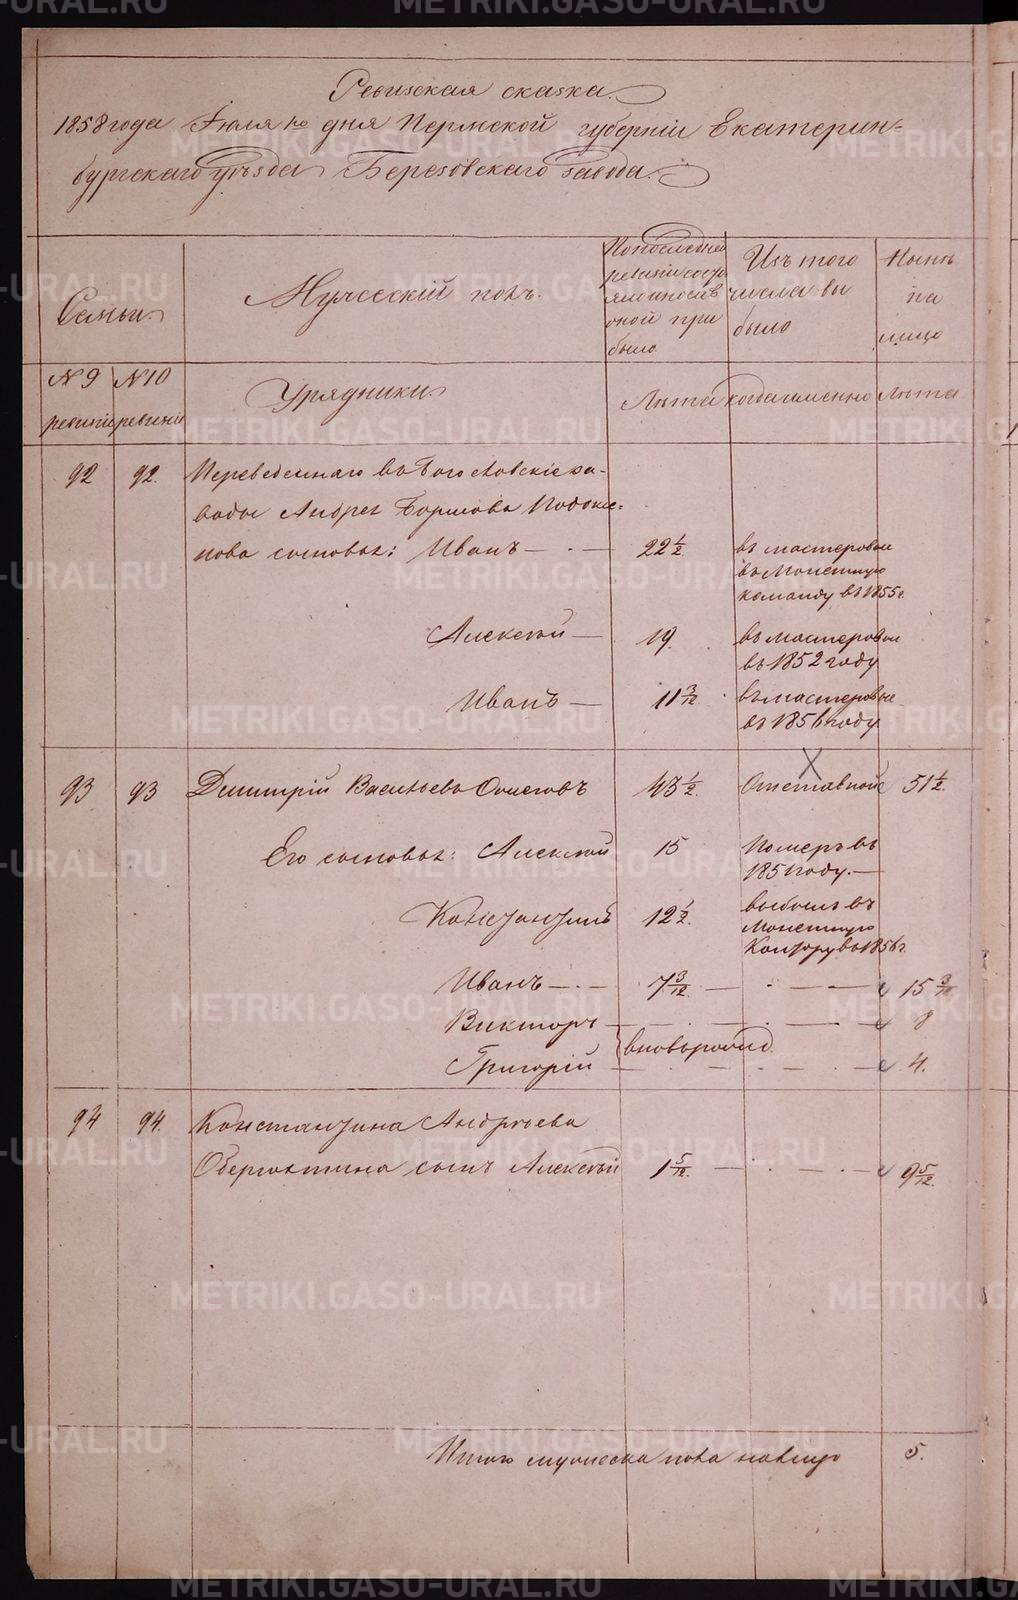 Ревизская сказка.
1858 года Іюля дня Пермской губерніи Екатерин-
бургскаго уѣзда Березовскаго завода.
Семьи
Мужескій полъ.
По последней
ревизіи состо
яло и после
оной при
было
Изъ того
числа вы
было
Нынѣ
на
лицо
№ 9 № 10
ревизіи ревизіи
Урядники
Лѣта когда именно Лѣта
92 92. Переведеннаго въ Богословскіе за-
воды Андрея
сыновья: Иванъ — 22 1/2 въ мастеровые
въ Монетную
команду въ 1855 г.
Алексѣй — 19. въ мастеровые
въ 1852 году
Иванъ — 11 3/12 въ мастеровые
въ 1856 году
93 93 Димитрій Васильевъ 43 1/2 Отставной 51 1/2.
Его сыновья: Алексѣй 15 Померъ въ
1851 году. —
Константинъ 12 1/2. выбылъ въ
Монетную
Контору въ 1856 г.
Иванъ — 7 3/12. — 15 3/12
Викторъ — 8
вновь рожд.
Григорій — 4.
94 94. Константина Андреева
сынъ Алексѣй 1 5/12. — 9 5/12.
Итого мужеска пола на лицо 5.
METRIKI.GASO-URAL.RU